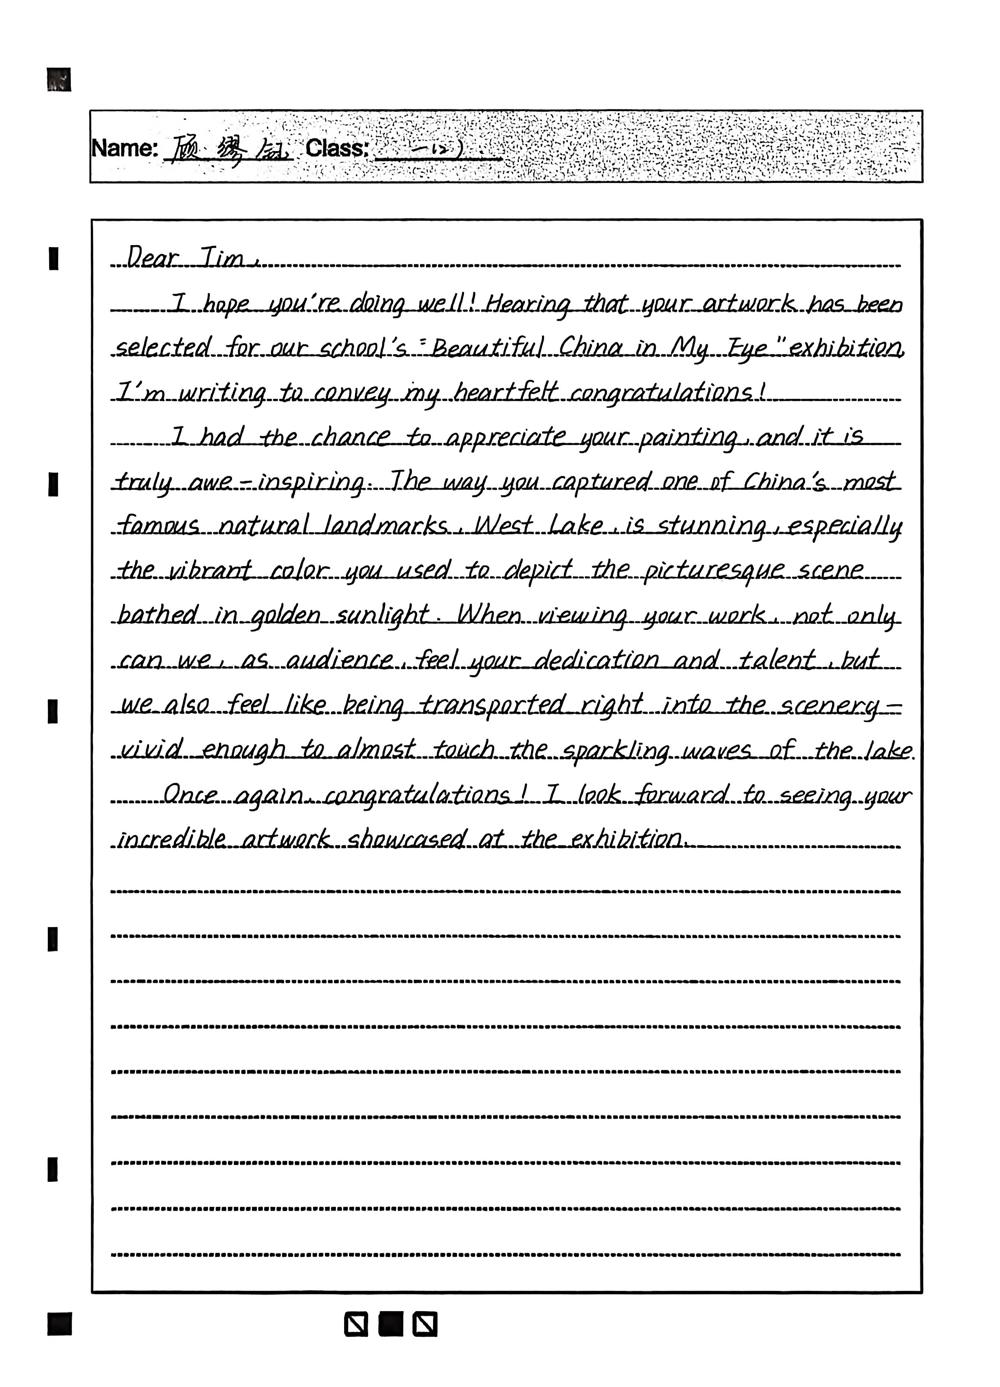 Name: 顾缪钰 Class: 一(2)
Dear Tim,
I hope you're doing well! Hearing that your artwork has been
selected for our school's "Beautiful China in My Eye" exhibition,
I'm writing to convey my heartfelt congratulations!
I had the chance to appreciate your painting, and it is
truly awe-inspiring. The way you captured one of China's most
famous natural landmarks, West Lake, is stunning, especially
the vibrant color you used to depict the picturesque scene
bathed in golden sunlight. When viewing your work, not only
can we, as audience, feel your dedication and talent, but
we also feel like being transported right into the scenery—
vivid enough to almost touch the sparkling waves of the lake.
Once again, congratulations! I look forward to seeing your
incredible artwork showcased at the exhibition.